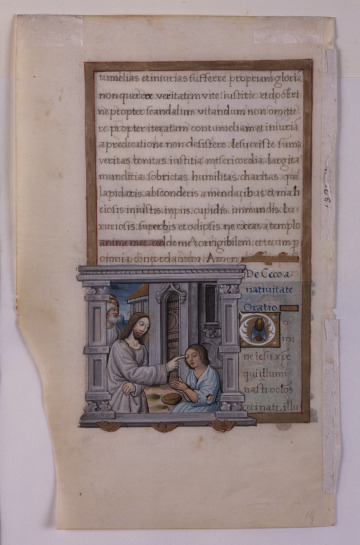 tumelias et iniurias sufferre propriam gloria
non querere veritatem vite iustitie et doctri
ne propter scandalum vitandum non omitte
re propter iteratam contumeliam et iniuria
a predicatione non desistere Iesu christe suma
veritas bonitas iustitia misericordia largita
munditia sobrietas humilitas charitas qui
lapidaris absconderis a mendatibus et mali
ciosis iniustis impiis cupidis immundis lu
xuriosis superbis et odiosis ne exeas a templo
anime mee
omnia dirige Amen
De Ceco a
nativitate
Oratio
O
mi
ne iesu xpe
qui illumi
nasti oclos
ceci nati illu